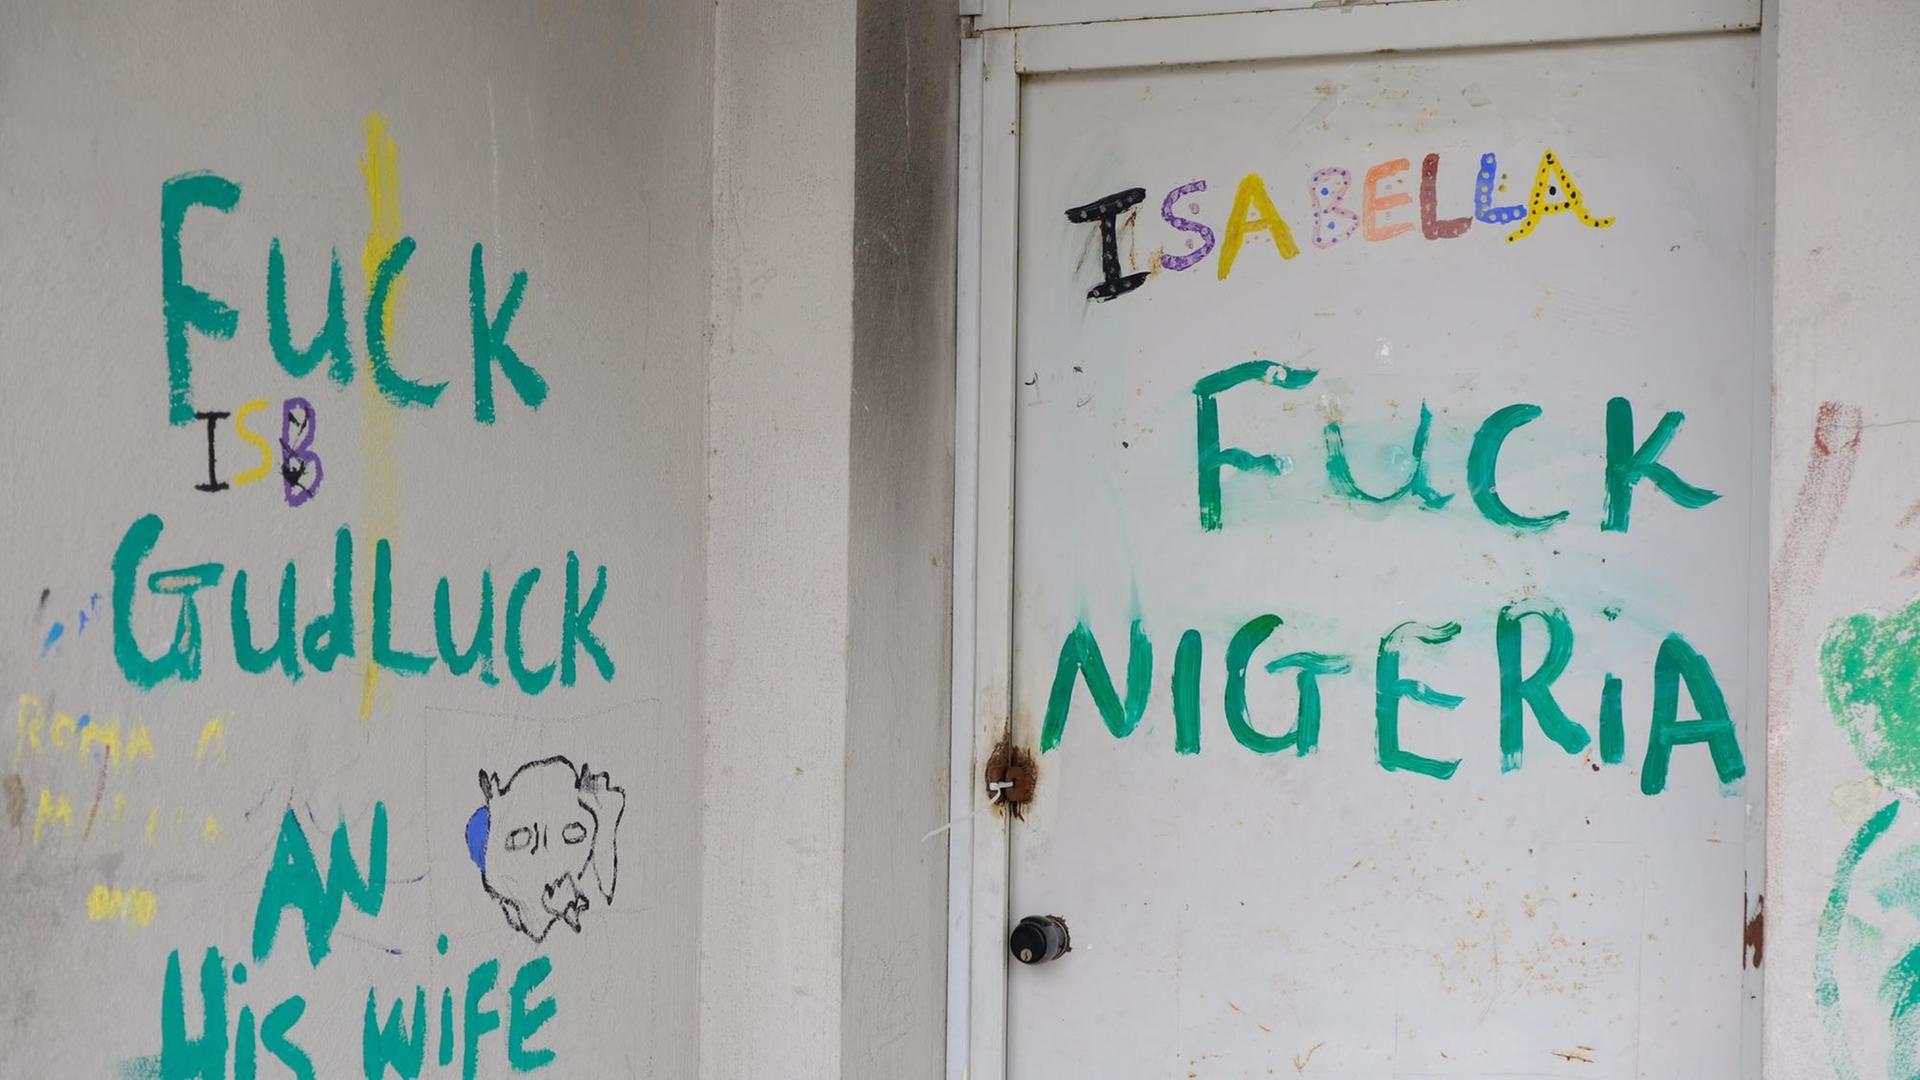 FUCK
ISB
GUdLUCK
AN
HiS WiFE
ISABELLA
FUCK
NIGERiA